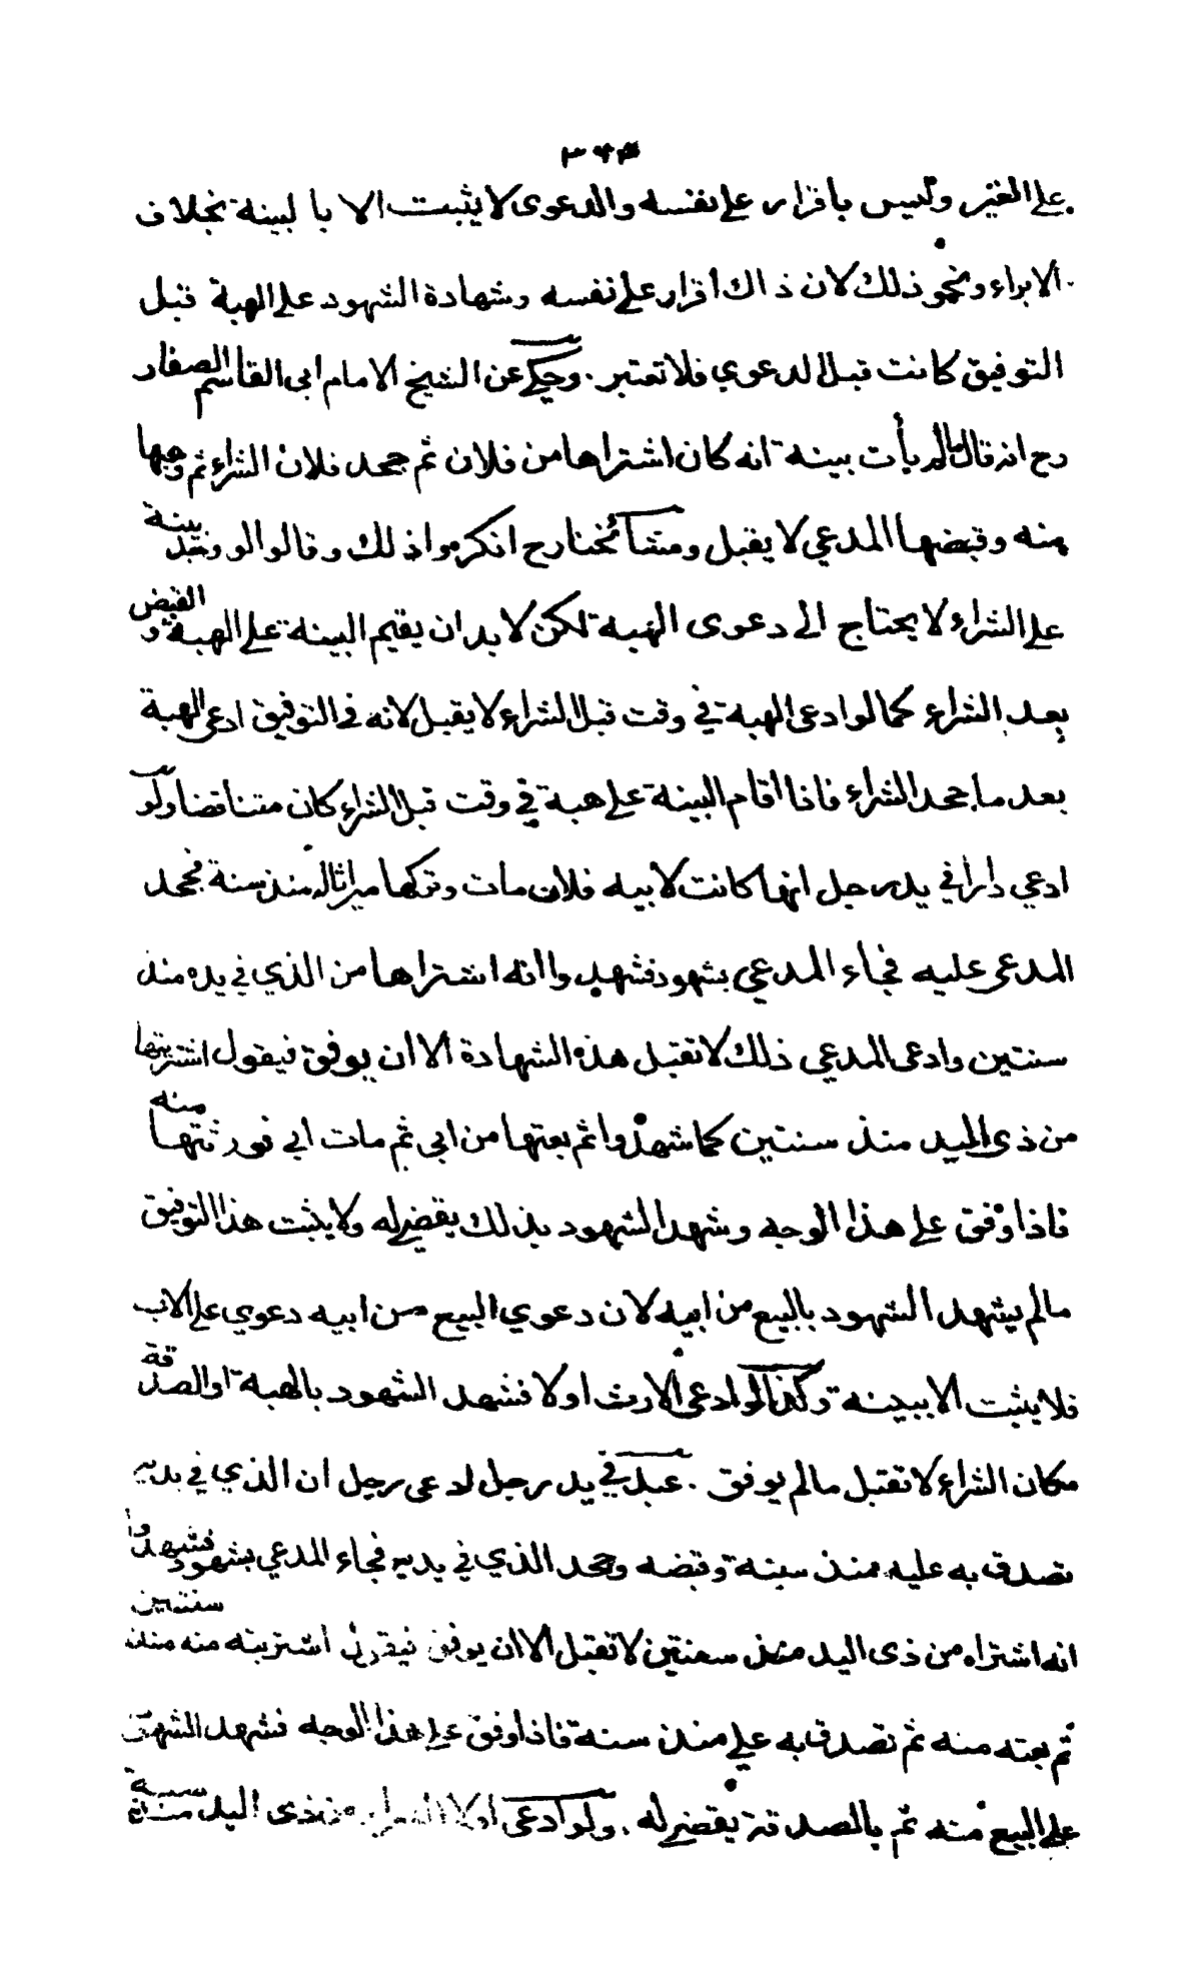 ٣٤٤
على الغير وليس باقرار على نفسه والدعوى لا يثبت الا با لبينة بخلاف
الابراء ونحو ذلك لان ذاك اقرار على نفسه وشهادة الشهود على الهبة قبل
التوفيق كانت قبل الدعوي فلا تعتبر . وحكي عن الشيخ الامام ابى القاسم الصفار
رح انه قال ما لم يأت ببينة انه كان اشتراها من فلان ثم جحد فلان الشراء ثم وهبها
منه وقبضها المدعي لا يقبل ومشائخنا رح انكروا ذلك وقالوا لو وجد بينة
على الشراء لا يحتاج الى دعوى الهبة لكن لا بد ان يقيم البينة على الهبة و القبض
بعد الشراء كما لو ادعى الهبة في وقت قبل الشراء لا يقبل لانه فى التوفيق ادعى الهبة
بعد ما جحد الشراء فاذا اقام البينة على هبة في وقت قبل الشراء كان متناقضا ولو
ادعي دارا في يد رجل انها كانت لابيه فلان مات وتركها ميراثا له منذ سنة فجحد
المدعى عليه فجاء المدعي بشهود فشهدوا انه اشتراها من الذي في يده منذ
سنتين وادعى المدعي ذلك لا تقبل هذه الشهادة الا ان يوفق فيقول اشتريتها
من ذى اليد منذ سنتين كما شهدوا ثم بعتها من ابى ثم مات ابي فورثتها منه
فاذا وفق على هذا الوجه وشهد الشهود بذلك يقضى له ولا يثبت هذا التوفيق
مالم يشهد الشهود بالبيع من ابيه لان دعوي البيع من ابيه دعوي على الاب
فلا يثبت الا ببينة وكذا لو ادعى الارث اولا فشهد الشهود بالهبة او الصدقة
مكان الشراء لا تقبل مالم يوفق . عبد في يد رجل ادعى رجل ان الذي في يديه
تصدق به عليه منذ سنة وقبضه وجحد الذي في يديه فجاء المدعي بشهود فشهدوا
انه اشتراه من ذى اليد منذ سنتين لا تقبل الا ان يوفق فيقول اشتريته منه منذ سنتين
ثم بعته منه ثم تصدق به علي منذ سنة فاذا وفق على هذا الوجه فشهد الشهود
على البيع منه ثم بالصدقة يقضى له . ولو ادعى اولا الشراء من ذى اليد منذ سنة